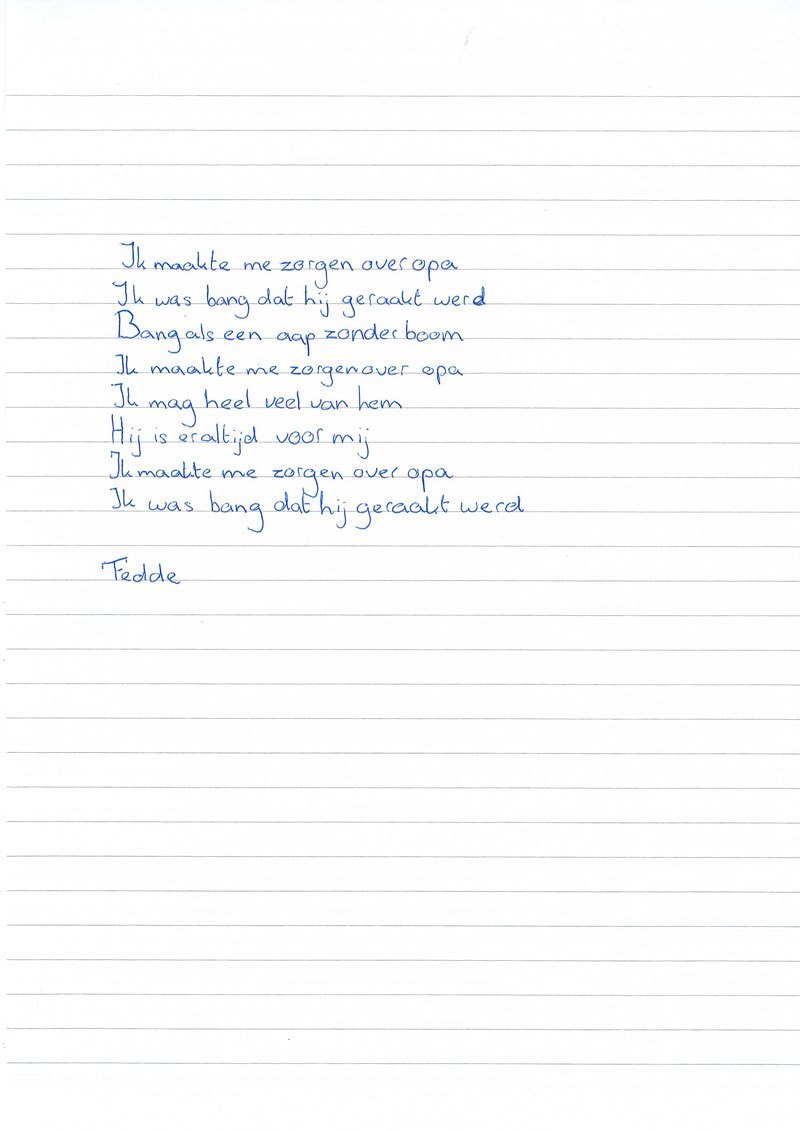 Ik maakte me zorgen over opa
Ik was bang dat hij geraakt werd
Bang als een aap zonder boom
Ik maakte me zorgen over opa
Ik mag heel veel van hem
Hij is er altijd voor mij
Ik maakte me zorgen over opa
Ik was bang dat hij geraakt werd
Fedde